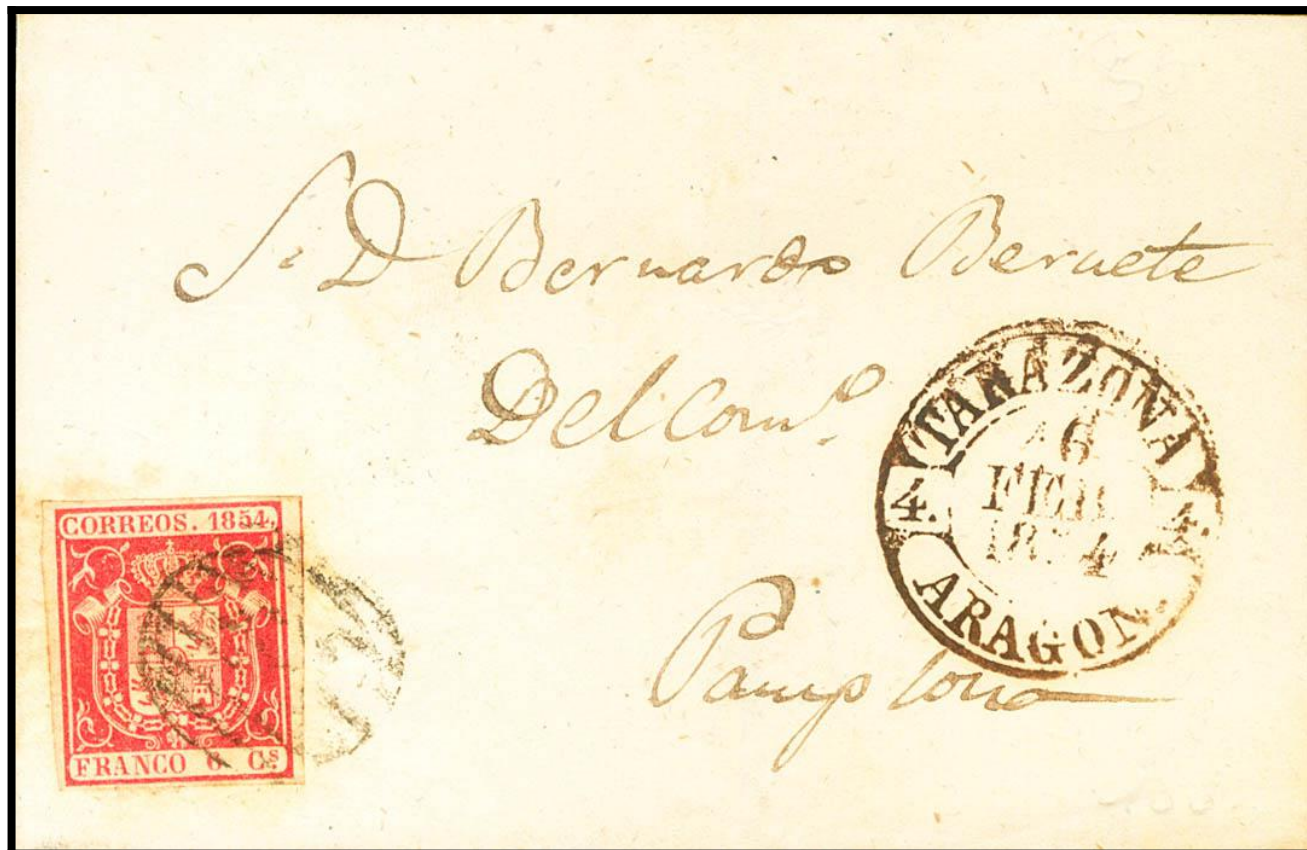 S. D Bernardo Beruete
Del Com.º
Pamplona
TARAZONA
4. 4.
6
FEB.
1854
ARAGON.
CORREOS. 1854.
FRANCO 6 Cs.